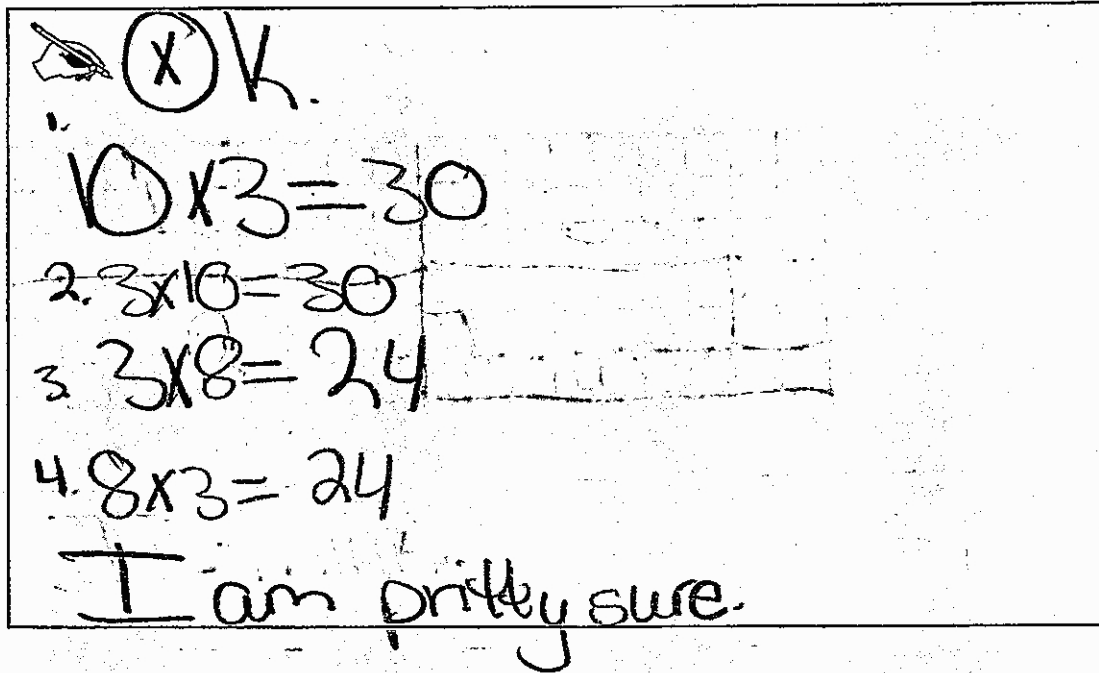 X K.
1.
10 x 3 = 30
2. 3x10 = 30
3. 3x8 = 24
4. 8x3 = 24
I am pritty sure.